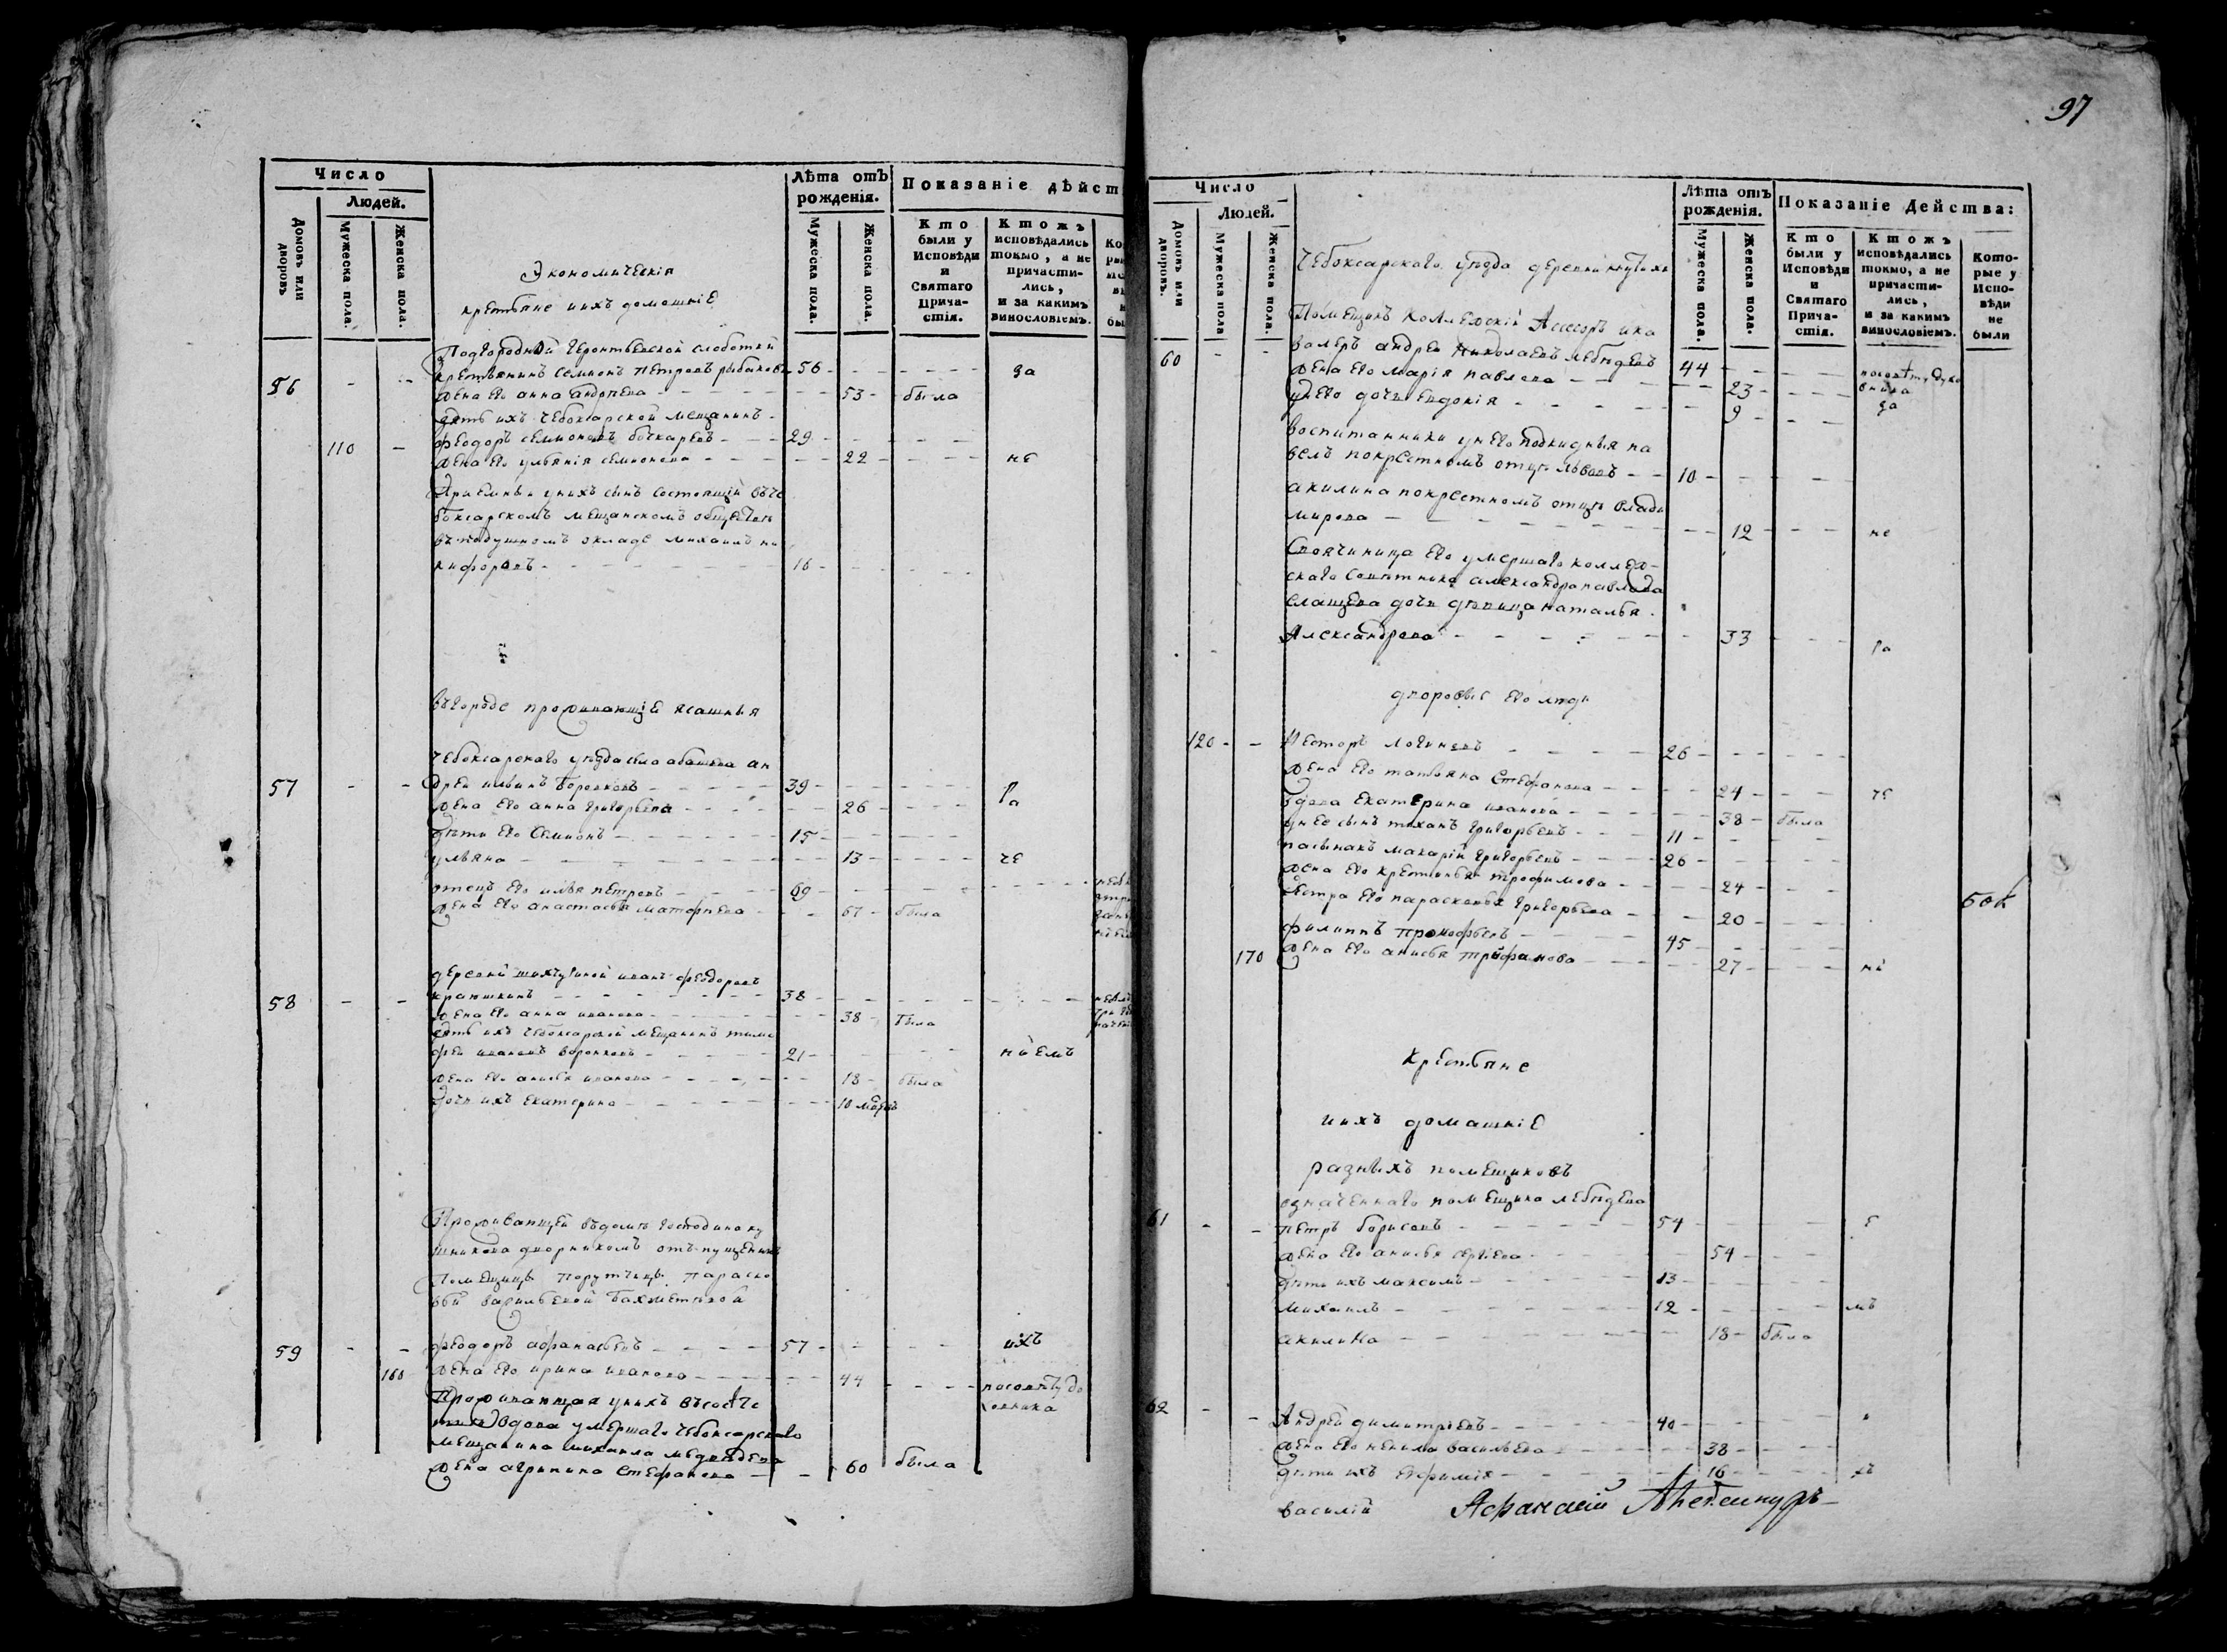 Число
Людей.
Домовъ или дворовъ
Мужеска пола.
Женска пола.
Лѣта отъ рожденія.
Мужеска пола.
Женска пола.
Показаніе дѣйст
Кто были у Исповѣди и Святаго Прича-стія.
Ктожъ исповѣдались токмо, а не причасти-лись, и за какимъ винословіемъ.
Экономическія
крестьяне ихъ домашніе
Подгородной Геронтьевской слоботки
56 - - крестьянинъ Семионъ Петровъ рыбаковъ 56 - - - - да
жена его анна андреева - - - 53 - была
дѣти ихъ чебоксарской мещанинъ -
110 - феодоръ семионовъ бочкаревъ - - - 29 - - - -
жена его улианія семионова - - - 22 - - - не
Приемны у нихъ сынъ состоящій въ че
боксарскомъ мещанскомъ обществѣ
въ подушномъ окладе михаилъ ни
кифоровъ - - - 16 - - - -
въ городе проживающіе ясашныя
чебоксарскаго уѣзда села абашева ан
57 - - дрей ильинъ Боровковъ - - - 39 - - -
жена его анна григорьева - - - 26 - - -
дѣти его Семионъ - - - 15 - - -
ульяна - - - 13 - - - че
отецъ его илья петровъ - - - 69 - - -
жена его анастасья матофеева - - 67 - была
деревни шихчугиной иванъ феодоровъ
58 - - - - - 38 - - -
жена его анна иванова - - - 38 - была
дѣти ихъ чебоксарской мещанинъ тимо
фей ивановъ воронковъ - - - 21 - - -
жена его анисья иванова - - - 18 - была
дочь ихъ Екатерина - - - 10
Проживающей въ доме господина ку
шникова дворникомъ отпущенникъ
Помещицы Порутчицы Параско
вьи васильевой Бахметьевой
59 - - феодоръ афанасьевъ - - - 57 - - - ихъ
160 жена его ирина иванова - - - 44 - - - посовѣту ду
ховника
Проживающая у нихъ
вдова умершаго чебоксарскаго
мещанина михаила медведева
жена агрипина Стефанова - - 60 была
97
Число
Людей.
Домовъ или дворовъ.
Мужеска пола
Женска пола.
Лѣта отъ рожденія.
Мужеска пола.
Женска пола.
Показаніе Действа:
Кто были у Исповѣди и Святаго Прича-стія.
Ктожъ исповѣдались токмо, а не причасти-лись, и за какимъ винословіемъ.
Кото-рые у Испо-вѣди не были
Чебоксарскаго уѣзда деревни
Помещикъ Коллежскій Ассесоръ и ка
60 - - валеръ андрей Николаевъ лебедевъ 44 - - - посовѣту духо
жена его марія павлова - - - 23 - - - вника
у него дочь евдокія - - - 9 - - да
воспитанники у него подкидныя па
велъ по крестномъ отцѣ львовъ - - 10 - - -
акилина по крестномъ отцѣ влади
мирова - - - 12 - - - не
Своячиница его умершаго коллеж-
скаго Советника александра павлова
Слащева дочь девица наталья
Александрова - - - 33 - - -
дворовые его люди
120 - - Несторъ логиновъ - - - 26 - - -
жена его татьяна Стефанова - - - 24 - - - че
вдова Екатерина иванова - - - 38 - была
у нее сынъ тиханъ григорьевъ - - - 11 - - -
пасынакъ макарій григорьевъ - - - 26 - - -
жена его трофимова - - - 24 - - -
сестра его парасковья григорьева - - - 20 - - -
филиппъ - - - 45 - - -
170 жена его анисья трифанова - - - 27 - - -
Крестьяне
ихъ домашніе
разныхъ помещиковъ
означеннаго помещика лебедева
61 - - петръ борисовъ - - - 54 - - -
жена его анисья сергіева - - - 54 - - -
дѣти ихъ максимъ - - - 13 - - -
михаилъ - - - 12 - - - мъ
акилина - - - 18 - была
62 - - Андрей димитріевъ - - - 40 - - -
жена его ненила васильева - - - 38 - - -
дѣти ихъ Евфимія - - - 16 - - -
василій Афанасій